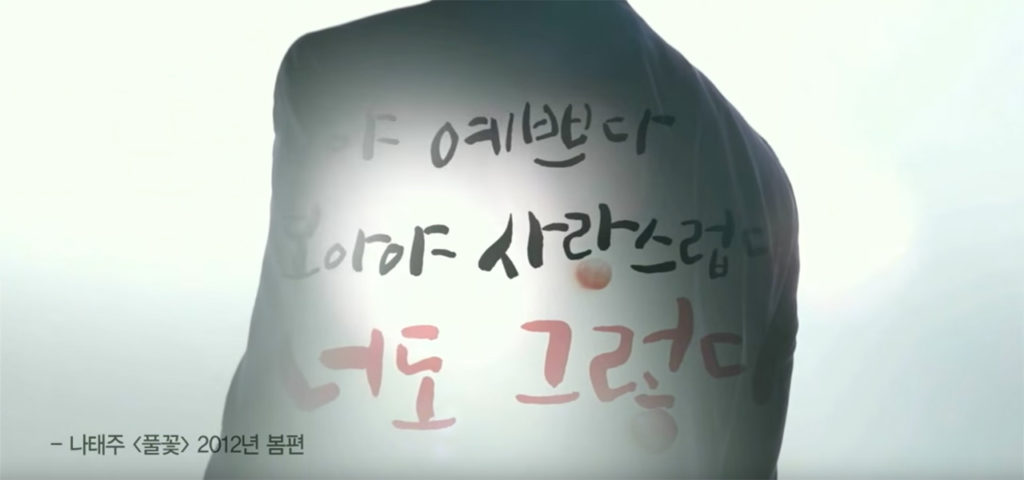 야 예쁘다
보아야 사랑스럽다
너도 그렇다
- 나태주 <풀꽃> 2012년 봄편